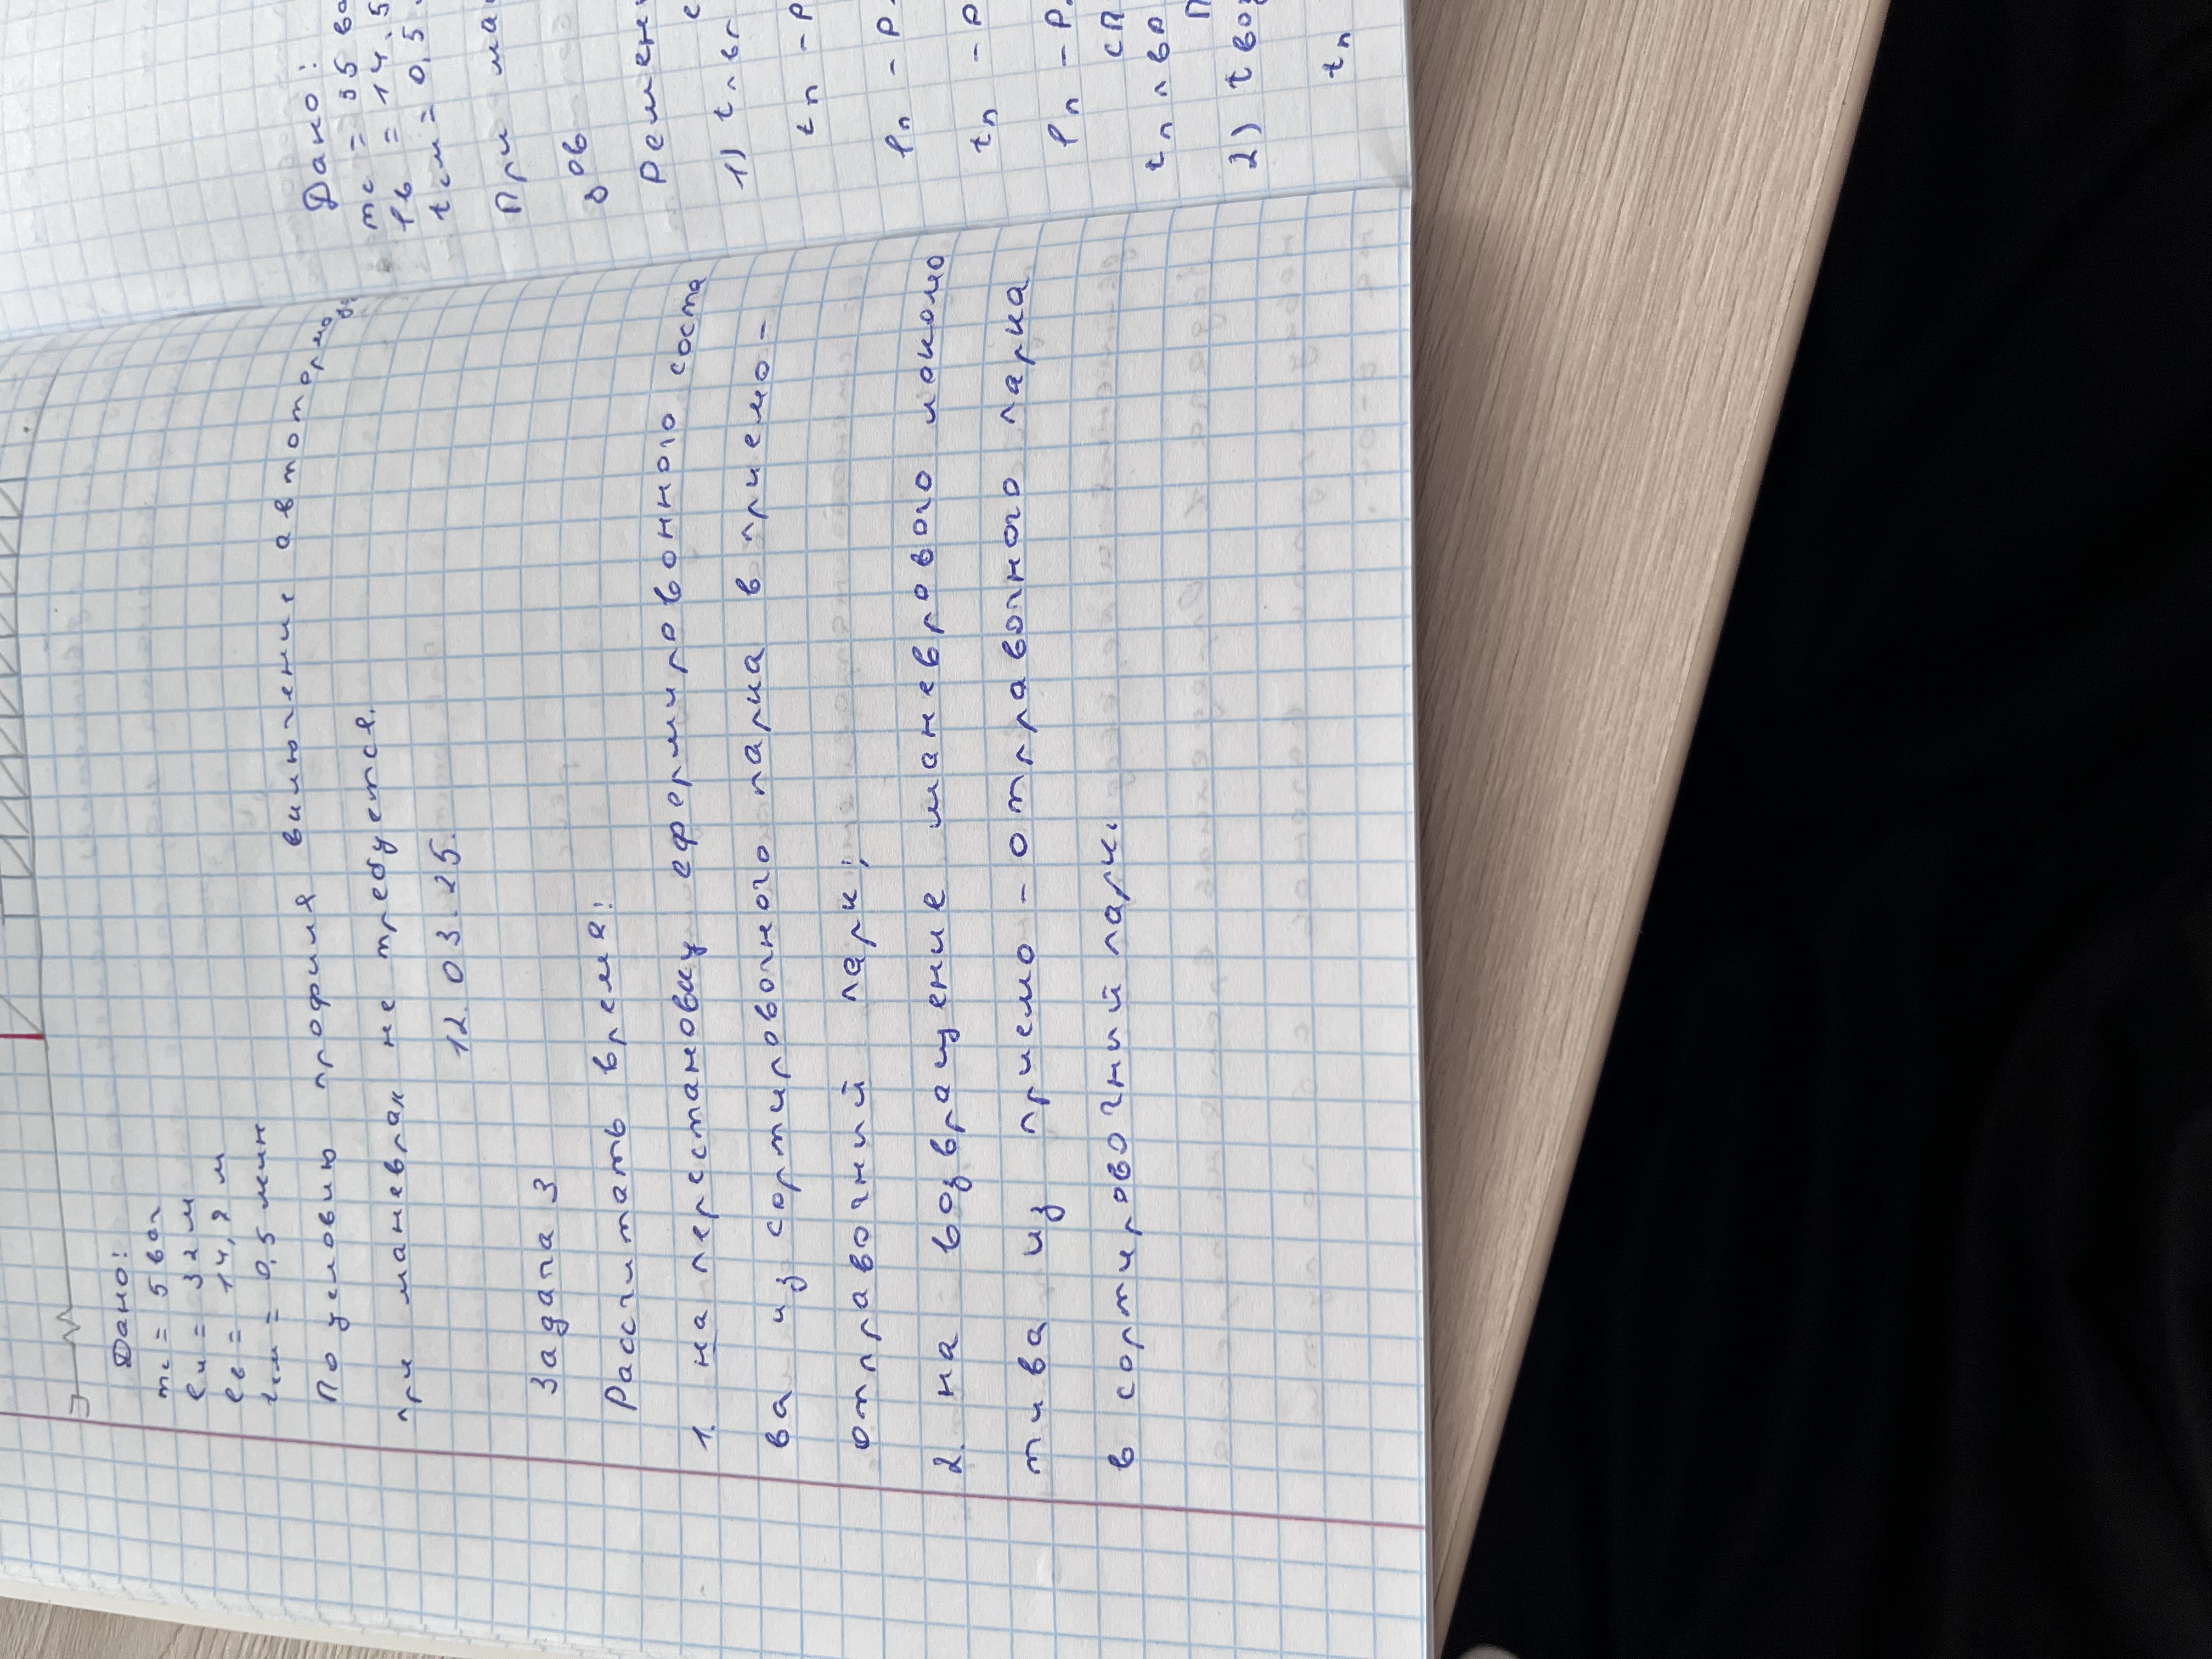 Дано:
mc = 5 ваг
lл = 32 м
lв = 14,7 м
tсм = 0,5 мин
По условию профиля включение автотормозов
при маневрах не требуется.
12.03.25.
Задача 3
Рассчитать время:
1. на перестановку сформированного соста
ва из сортировочного парка в приемо-
отправочний парк;
2. на возвращение маневрового локомо
тива из приемо-отправочного парка
в сортировочний парк.
Дано:
mc = 35 ва
lв = 14,5
tсм = 0,5
При ма
зов
Решени
1) t
tп - р
lп - р
tп - р
lп - р
2) t воз
tп